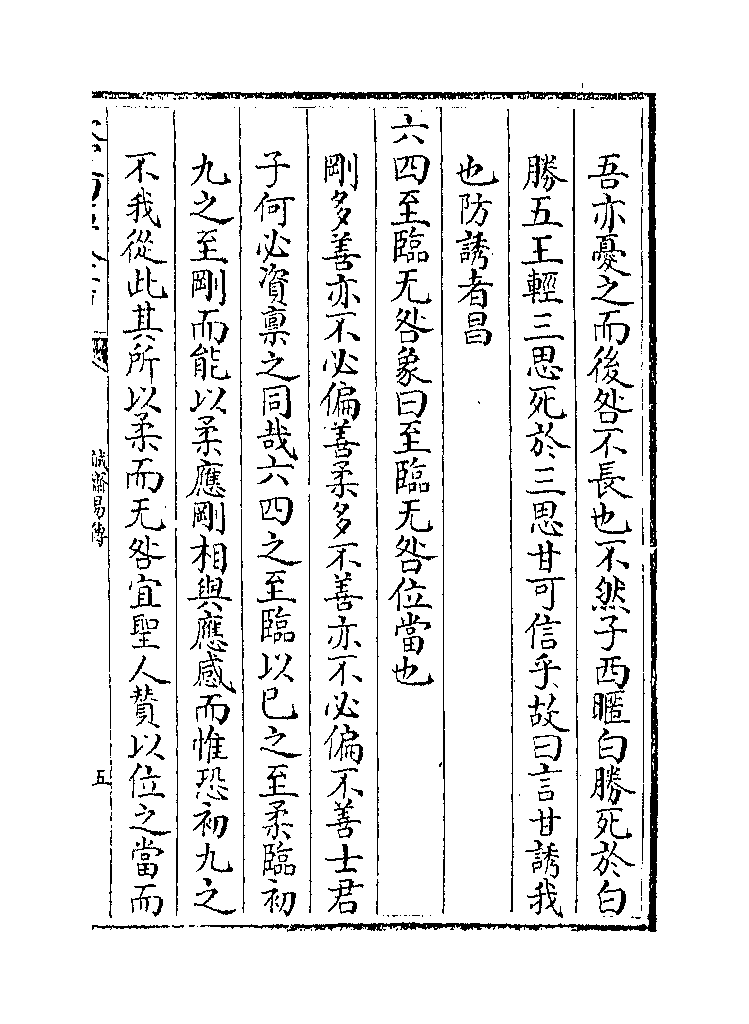 吾亦憂之而後咎不長也不然子西暱白勝死於白
勝五王輕三思死於三思甘可信乎故曰言甘誘我
也防誘者昌
六四至臨无咎象曰至臨无咎位當也
剛多善亦不必偏善柔多不善亦不必偏不善士君
子何必資禀之同哉六四之至臨以已之至柔臨初
九之至剛而能以柔應剛相與應感而惟恐初九之
不我從此其所以柔而无咎宜聖人賛以位之當而
誠齋易傳
五